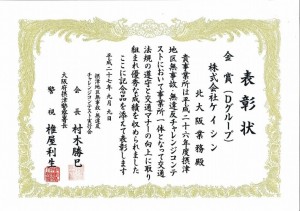 表彰状
金賞(Dグループ)
株式会社ケイシン
北大阪業務殿
貴事業所は平成二十六年度摂津
地区無事故・無違反チャレンジコンテ
ストにおいて事業所一体となって交通
法規の遵守と交通マナーの向上に取り
組まれ優秀な成績を収められました
ここに記念品を添えて表彰します
平成二十七年六月九日
摂津地区無事故・無違反
チャレンジコンテスト実行会
会長 村木勝巳
大阪府摂津警察署長
警視 椎屋利生